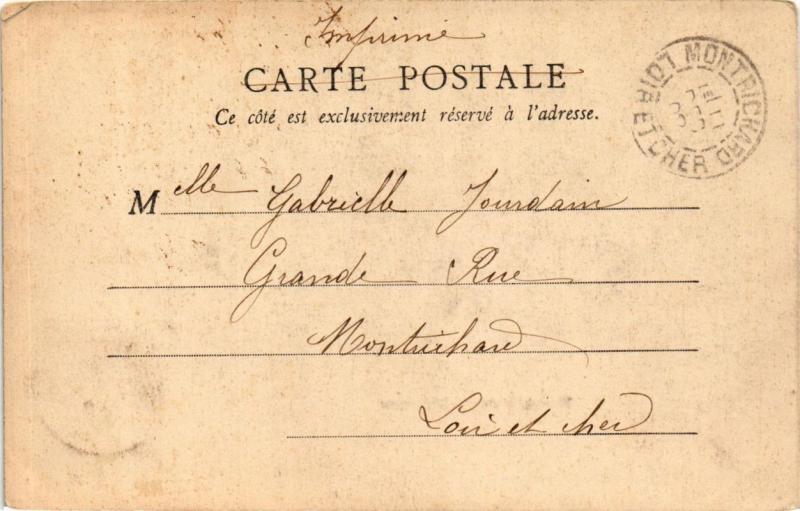 Imprimé
CARTE POSTALE
Ce côté est exclusivement réservé à l'adresse.
Melle Gabrielle Jourdain
Grande Rue
Montrichard
Loir et cher
MONTRICHARD
LOIR ET CHER